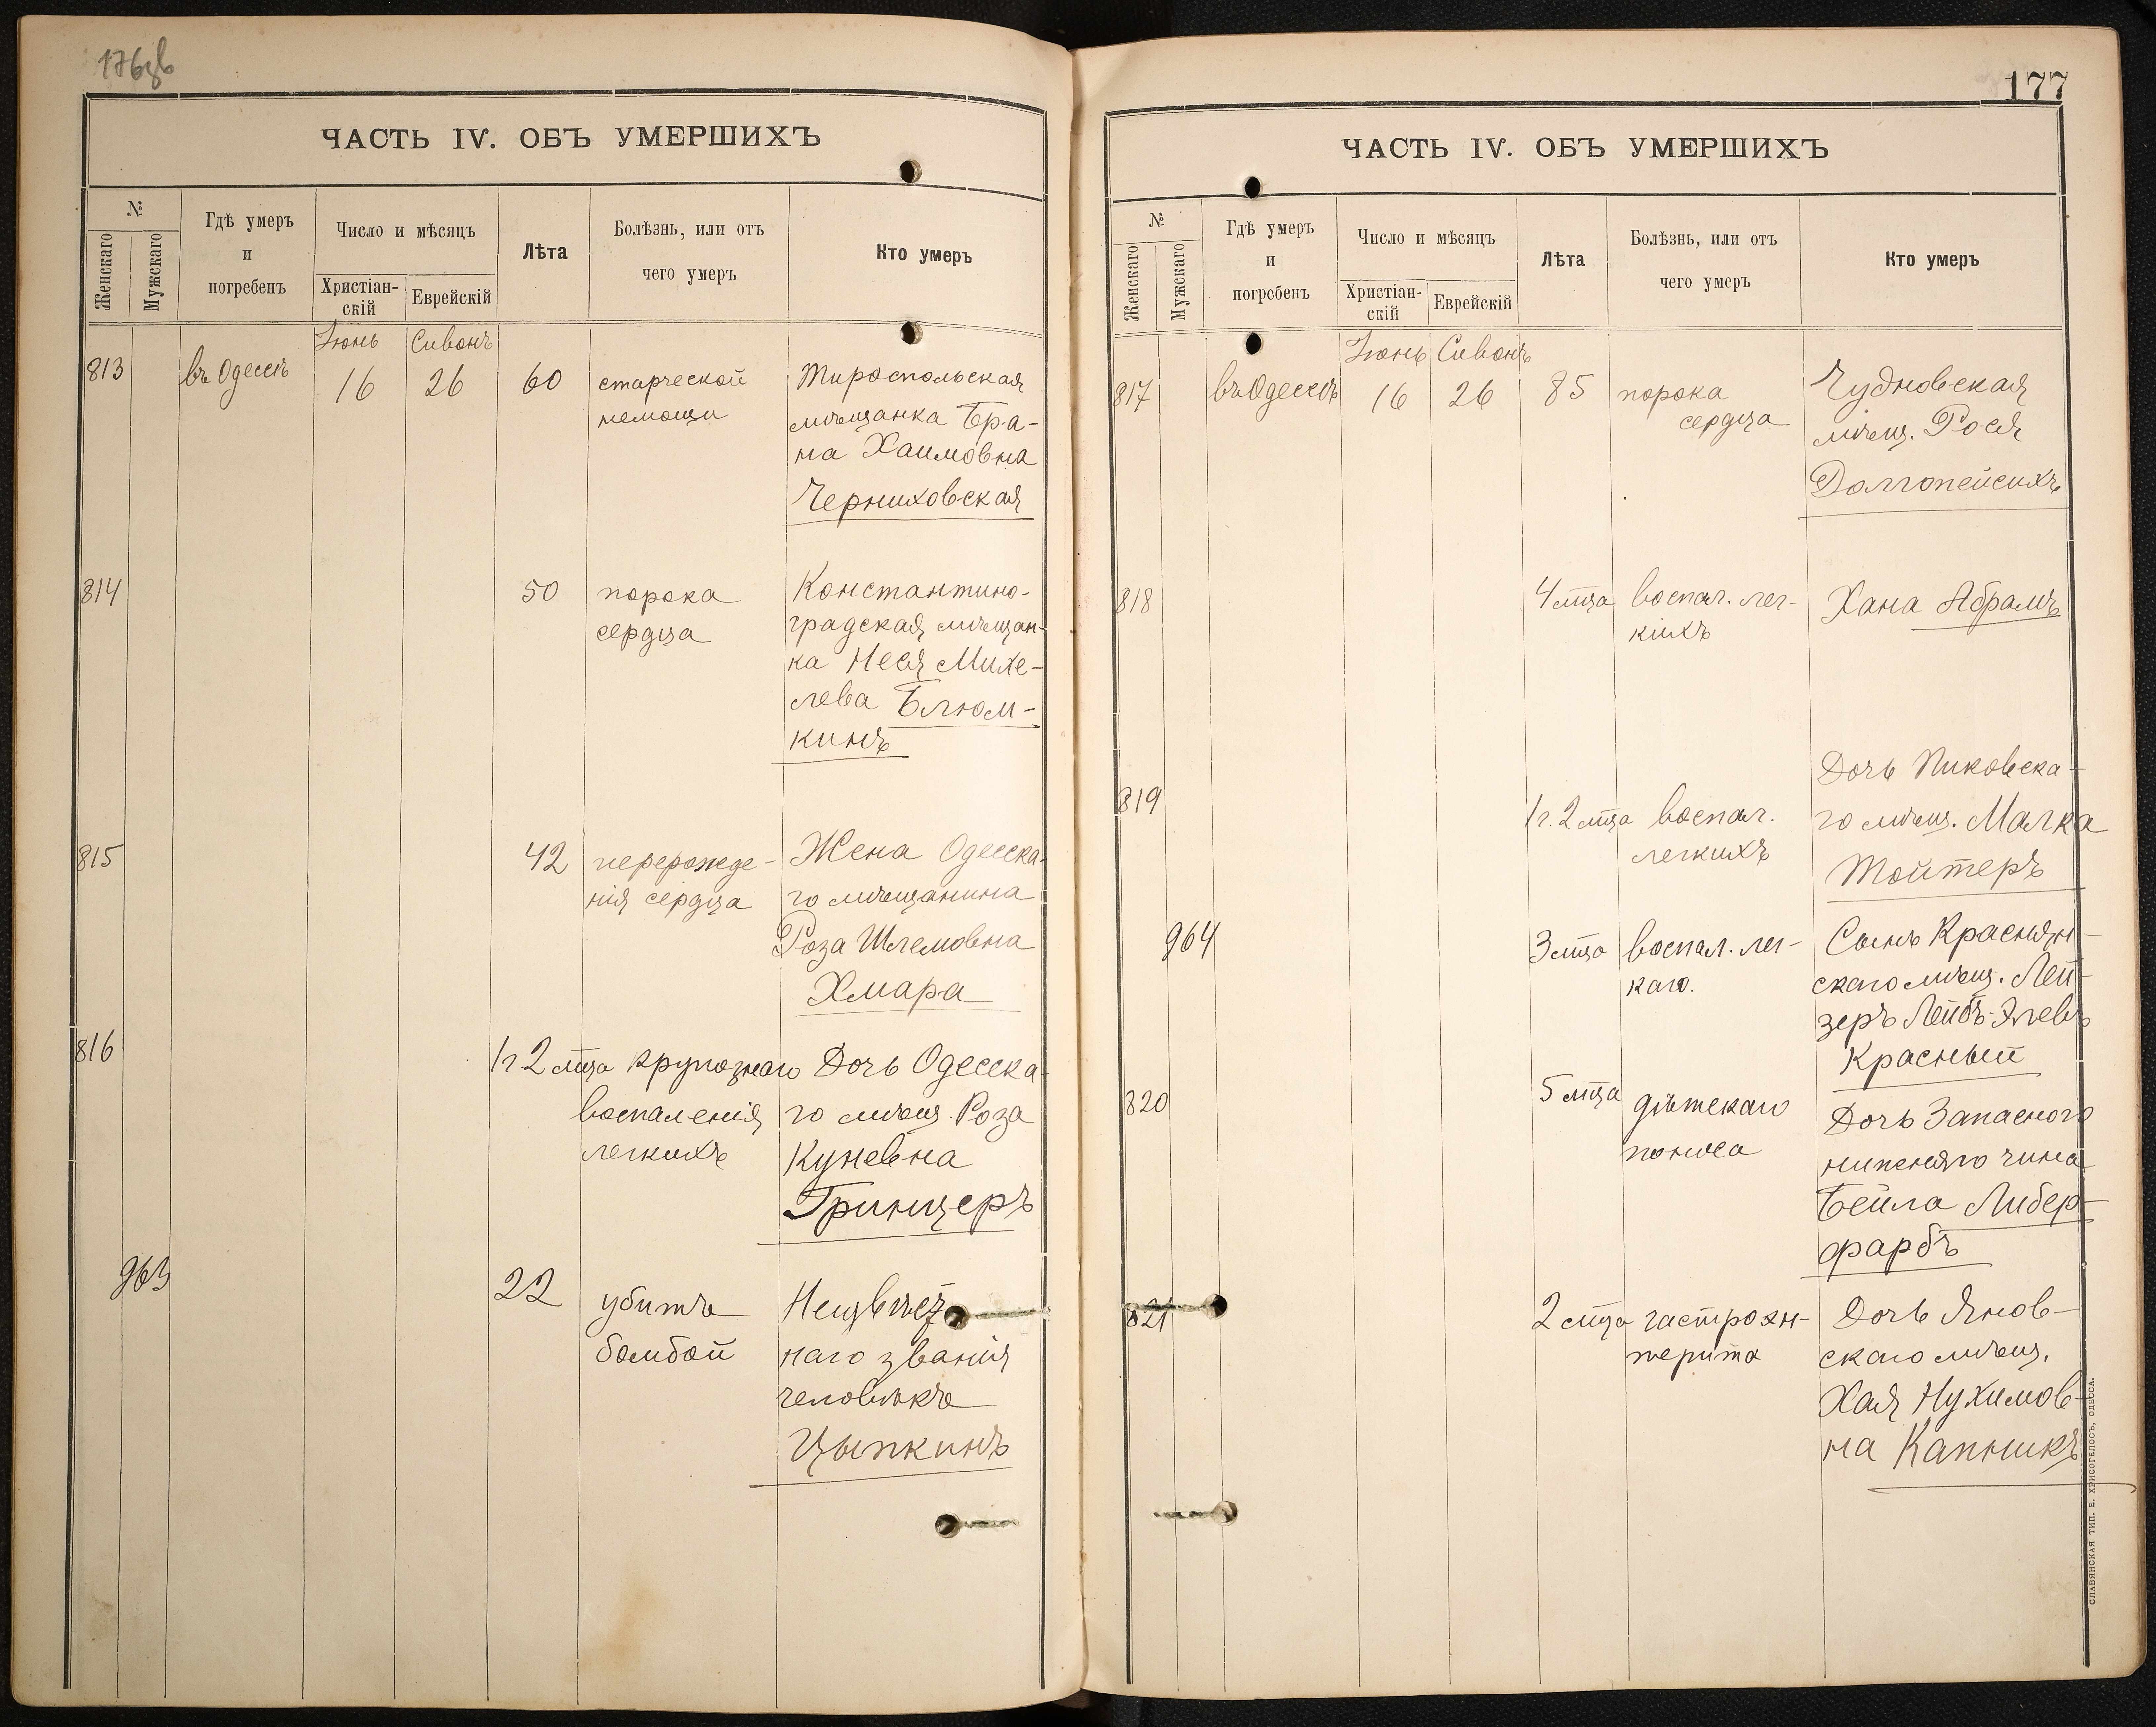 176 об
ЧАСТЬ IV. ОБЪ УМЕРШИХЪ
№
Женскаго
Мужскаго
Гдѣ умеръ
и
погребенъ
Число и мѣсяцъ
Христіан-
скій
Еврейскій
Лѣта
Болѣзнь, или отъ
чего умеръ
Кто умеръ
Іюнь Сивонъ
813 въ Одессѣ 16 26 60 старческой
немощи
Мираспольская
мѣщанка Бра-
на Хаимовна
Черниховская
814 50 порока
сердца
Константино-
градская мѣщан-
ка Нися Михе-
лева Блюм-
кинъ
815 42 перерожде-
нія сердца
Жена Одесска-
го мѣщанина
Роза Шлемовна
Хмара
816 1 г. 2 мца крупознаго
воспаленія
легкихъ
Дочь Одесска-
го мѣщ. Роза
Куневна
Гринцеръ
963 22 убитъ
бомбой
Неизвѣст-
наго званія
человѣкъ
Цыпкинъ
177
ЧАСТЬ IV. ОБЪ УМЕРШИХЪ
№
Женскаго
Мужскаго
Гдѣ умеръ
и
погребенъ
Число и мѣсяцъ
Христіан-
скій
Еврейскій
Лѣта
Болѣзнь, или отъ
чего умеръ
Кто умеръ
Іюнь Сивонъ
817 въ Одессѣ 16 26 85 порока
сердца
Чудновская
мѣщ. Рося
Долгопейсихъ
818 4 мца воспал. лег-
кихъ
Хана Абрамъ
819 1 г. 2 мца воспал.
легкихъ
Дочь Пиковска-
го мѣщ. Малка
Тойтеръ
964 3 мца воспал. лег-
каго.
Сынъ Краснян-
скаго мѣщ. Лей-
зеръ Лейбъ-Элевъ
Красный
820 5 мца дѣтскаго
поноса
Дочь Запасного
нижняго чина
Бейла Либер-
фарбъ
821 2 мца гастроэн-
терита
Дочь Янов-
скаго мѣщ.
Хая Нухимов-
на Капникъ
СЛАВЯНСКАЯ ТИП. Е. ХРИСОГЕЛОСЪ, ОДЕССА.